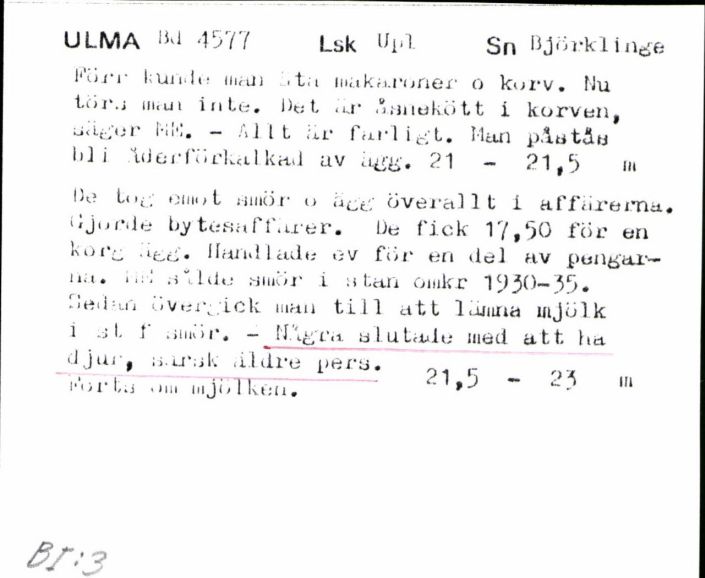 ULMA Bd 4577 Lsk Upl Sn Björklinge
Förr kunde man äta makaroner o korv. Nu
törs man inte. Det är åsnekött i korven,
säger ME. - Allt är farligt. Man påstås
bli åderförkalkad av ägg. 21 - 21,5 m
De tog emot smör o ägg överallt i affärerna.
Gjorde bytesaffärer. De fick 17,50 för en
korg ägg. Handlade ev för en del av pengar-
na. sålde smör i stan omkr 1930-35.
Sedan övergick man till att lämna mjölk
i st f smör. - Några slutade med att ha
djur, särsk äldre pers.
21,5 - 23 m
Forts om mjölken.
BI:3